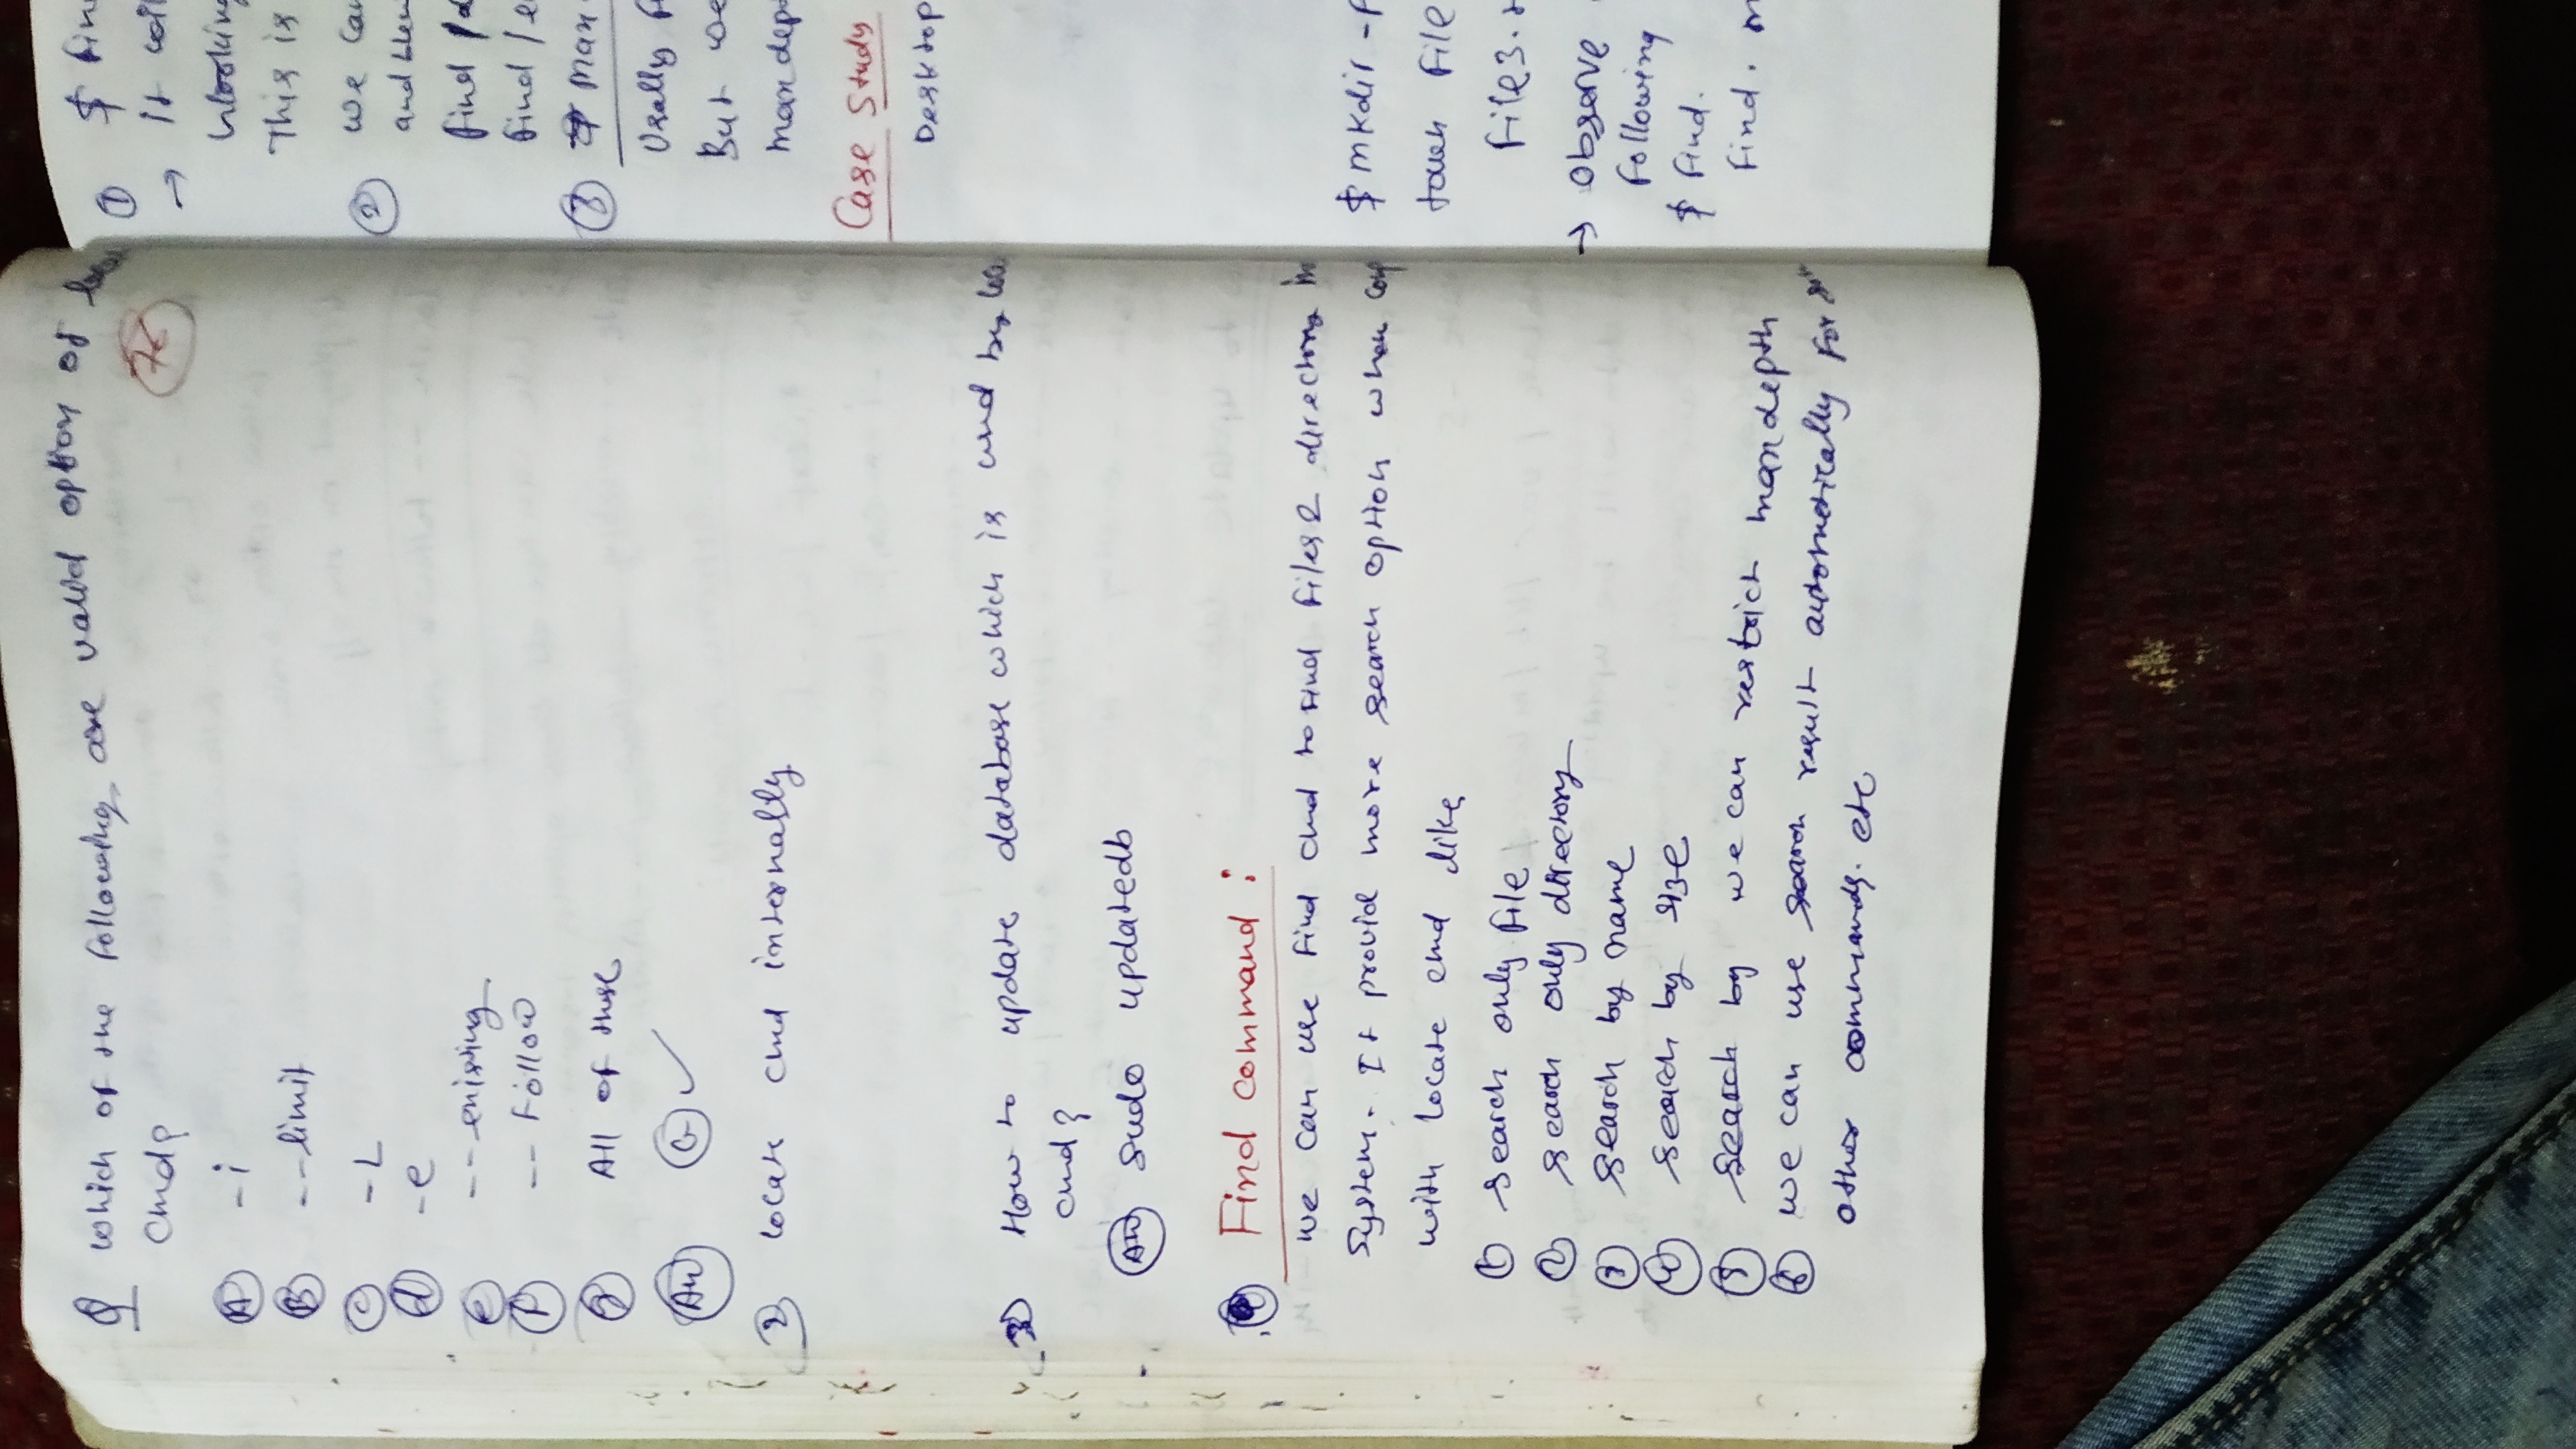 Q which of the following are valid option of
cmd?
76
A -i
B --limit
C -L
d -e
e --enisting
f -- Follow
g All of these
An G ✓
2 locate cmd internally
3) How to update database which is used by loca
cmd?
An sudo updatedb
Find command :
we can use find cmd to find files & directory in
system. It provid more search option when comp
with locate cmd like
1 search only file
2 search only directory
3 search by name
4 search by size
5 search by we can restrict maxdepth
6 we can use search result automatically for
other commands. etc
1 $ fin
→ It wil
This is
2 we can
find /
find /e
3 max
Usally f
But we
maxdept
Case Study
Desktop
$ mkdir -p
touch file
file3.t
→ observe
following
$ find.
find. m